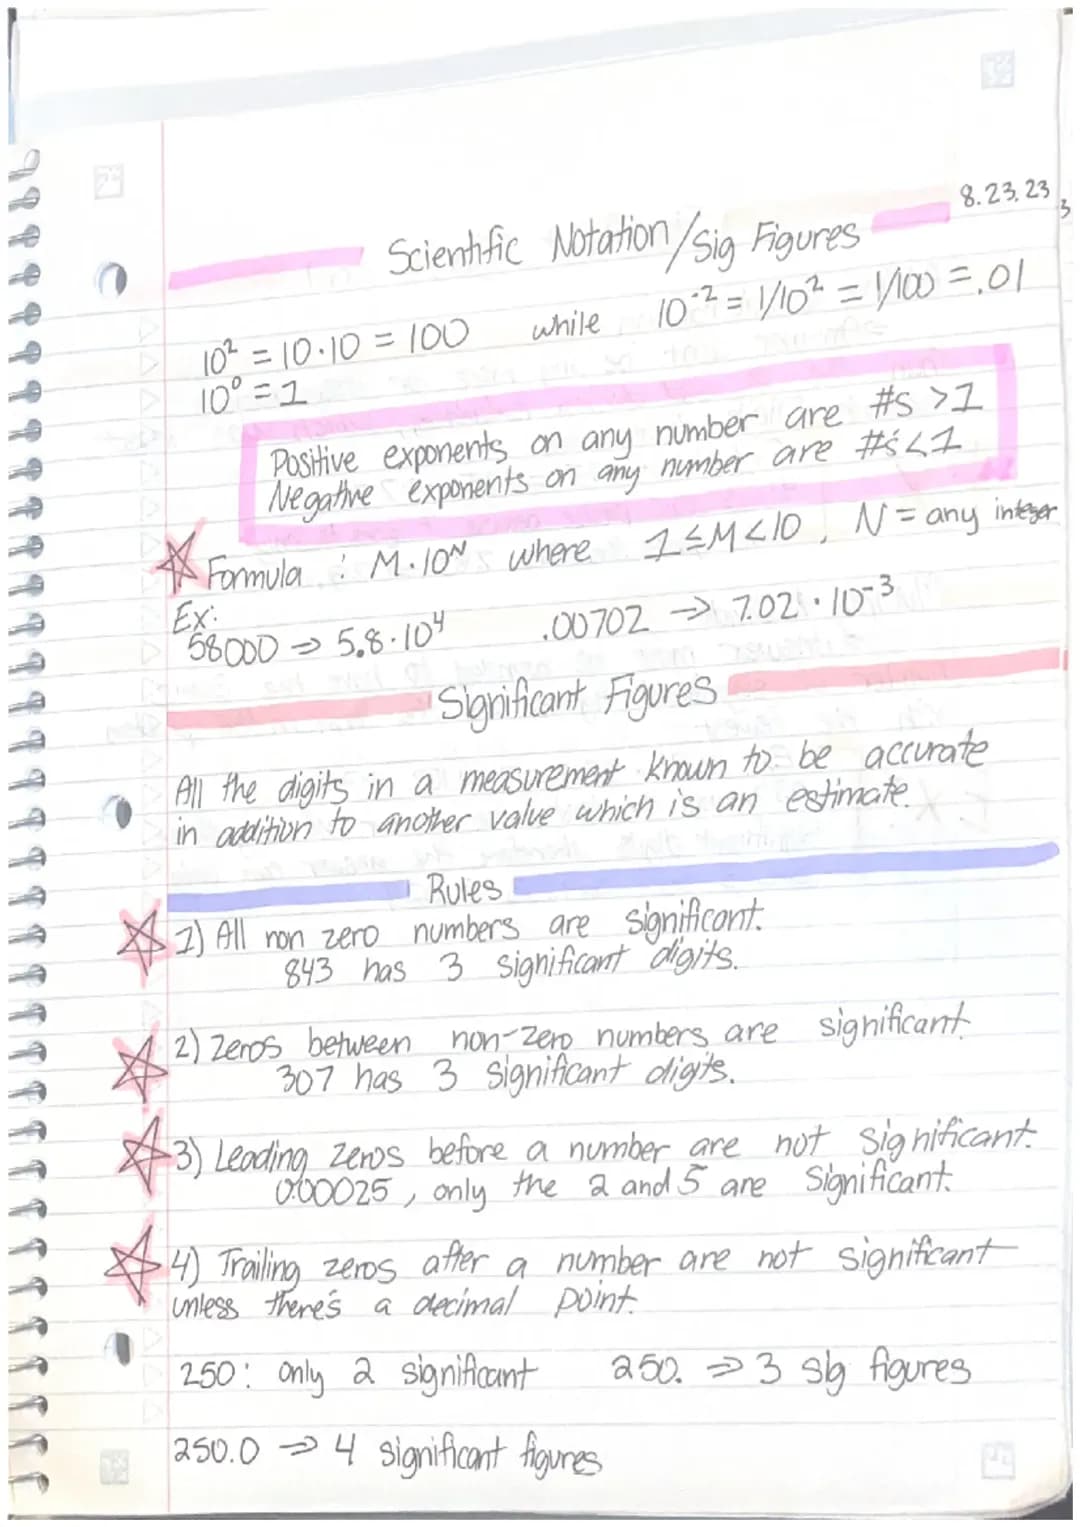 8.23.23
Scientific Notation/Sig Figures
10² = 10·10 = 100 while 10⁻² = 1/10² = 1/100 = .01
10⁰ = 1
Positive exponents on any number are #s >1
Negative exponents on any number are #s <1
Formula : M·10ᴺ where 1≤M<10, N = any integer
Ex:
58000 ⇒ 5.8·10⁴ .00702 → 7.02·10⁻³
Significant Figures
All the digits in a measurement known to be accurate
in addition to another value which is an estimate.
Rules
1) All non zero numbers are significant.
843 has 3 significant digits.
2) Zeros between non-zero numbers are significant.
307 has 3 significant digits.
3) Leading zeros before a number are not significant.
0.00025, only the 2 and 5 are significant.
4) Trailing zeros after a number are not significant
unless there's a decimal point.
250: only 2 significant 250. ⇒ 3 sig figures
250.0 ⇒ 4 significant figures